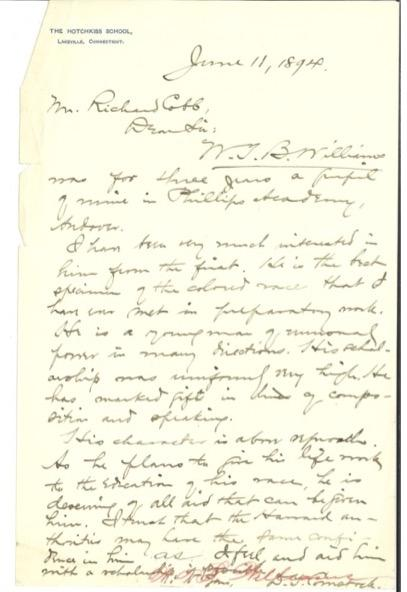 THE HOTCHKISS SCHOOL,
LAKEVILLE, CONNECTICUT.
June 11, 1894.
Mr. Richard Cobb,
Dear Sir:
W. T. B. Williams
was for three years a pupil
of mine in Phillips Academy,
Andover.
I have been very much interested in
him from the first. He is the best
specimen of the colored race that I
have ever met in preparatory work.
He is a young man of unusual
power in many directions. His schol-
arship was uniformly very high. He
has marked gift in lines of compo-
sition and speaking.
His character is above reproach.
As he plans to give his life work
to the education of his race, he is
deserving of all aid that can be given
him. I trust that the Harvard au-
thorities may have the same confi-
dence in him as I feel, and aid him
with a scholarship if possible.
Yours, D. Y. Comstock.